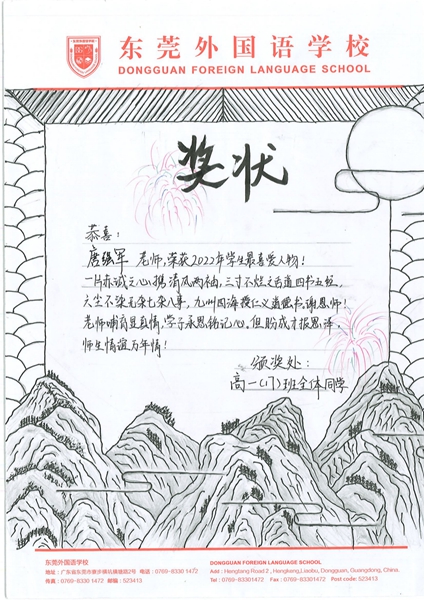 东莞外国语学校
DONGGUAN FOREIGN LANGUAGE SCHOOL
奖状
恭喜:
唐强军 老师,荣获2022年学生最喜爱人物!
一片赤诚之心携清风两袖,三寸不烂之舌道四书五经,
六尘不染无杂七杂八事,九州四海授仁义道德书谢恩师!
老师哺育显真情,学子承恩铭记心。但盼成才报恩泽,
师生情谊万年情!
颁奖处:
高一(17)班全体同学
东莞外国语学校
地址:广东省东莞市寮步镇坑横塘路2号 电话:0769-8330 1472
传真:0769-83301472 邮编:523413
DONGGUAN FOREIGN LANGUAGE SCHOOL
Add : Hengtang Road 2 , Hengkeng,Liaobu, Dongguan, Guangdong, China.
Tel : 0769-83301472 Fax : 0769-8330 1472 Post code: 523413